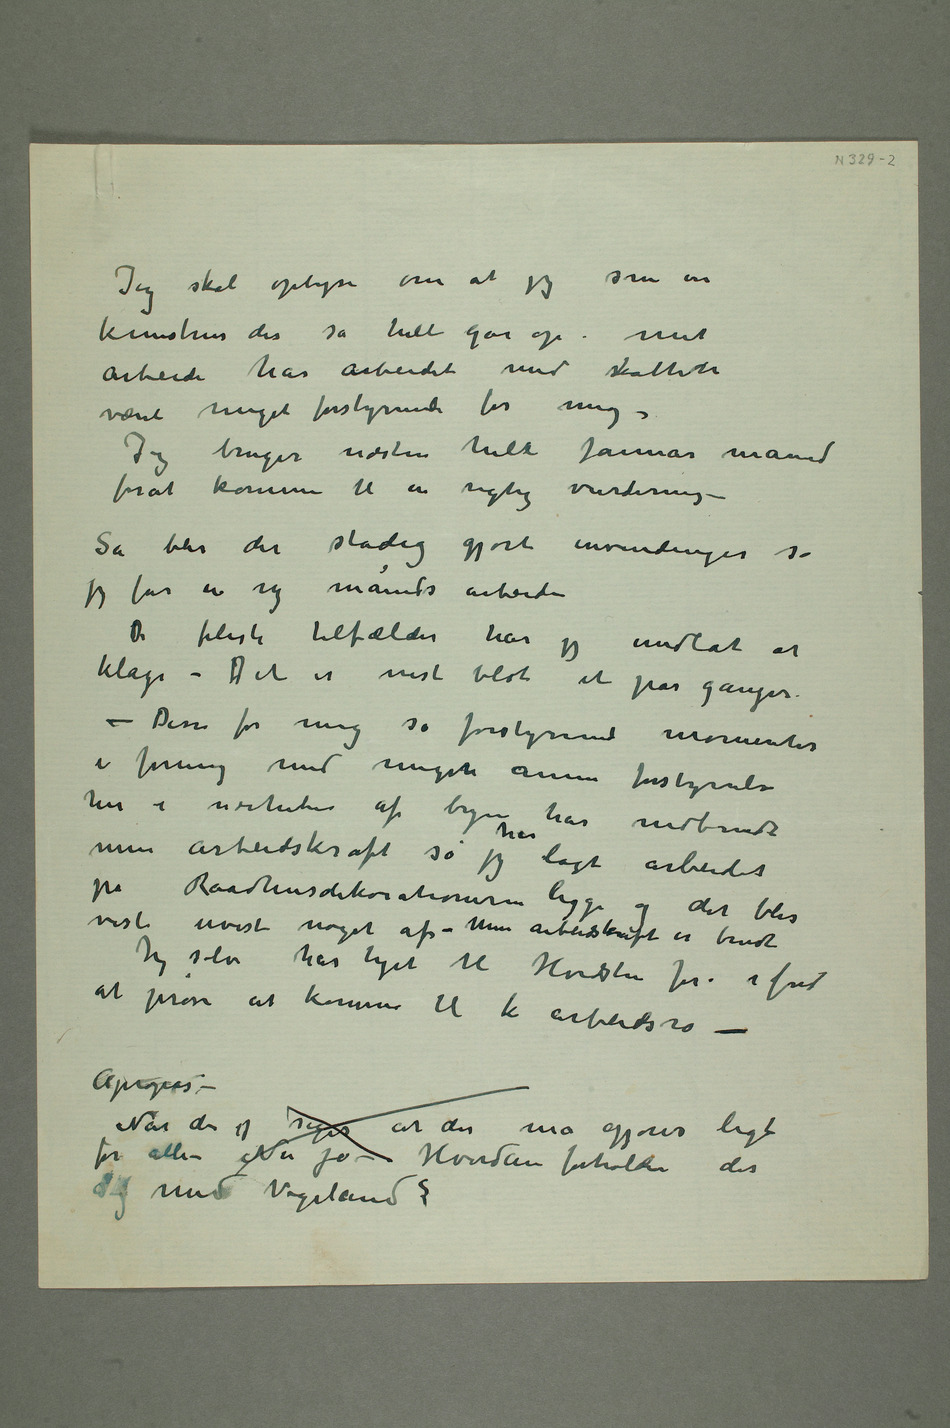 N 329-2
Jeg skal oplyse om at jeg som en
kunstner der så helt går op i mit
arbeide har arbeidet med skatten
været meget forstyrrende for mig –
Jeg bruger næsten helt januar måned
forat komme til en rigtig vurdering –
Så blir der stadig gjort invendinger så
jeg får en ny måneds arbeide
De fleste tilfælder har jeg undlat at
klage – Det er vist blot et par ganger.
– Disse for mig så forstyrrende momenter
i forening med megen annen forstyrrelse
her i nærheten af byen har nedbrudt
min arbeidskraft så jeg har lagt arbeidet
på Raadhusdekorationerne ligge og det blir
visst uvist noget af – Min arbeidskraft er brudt
Jeg selv har tyet til Hvidsten for i fred
at prøve at komme til arbeidsro —
Apropos –
Når der siges at der må gjøres ligt
for alle – Nu ja – Hvordan forholder det
sig med Vigeland?